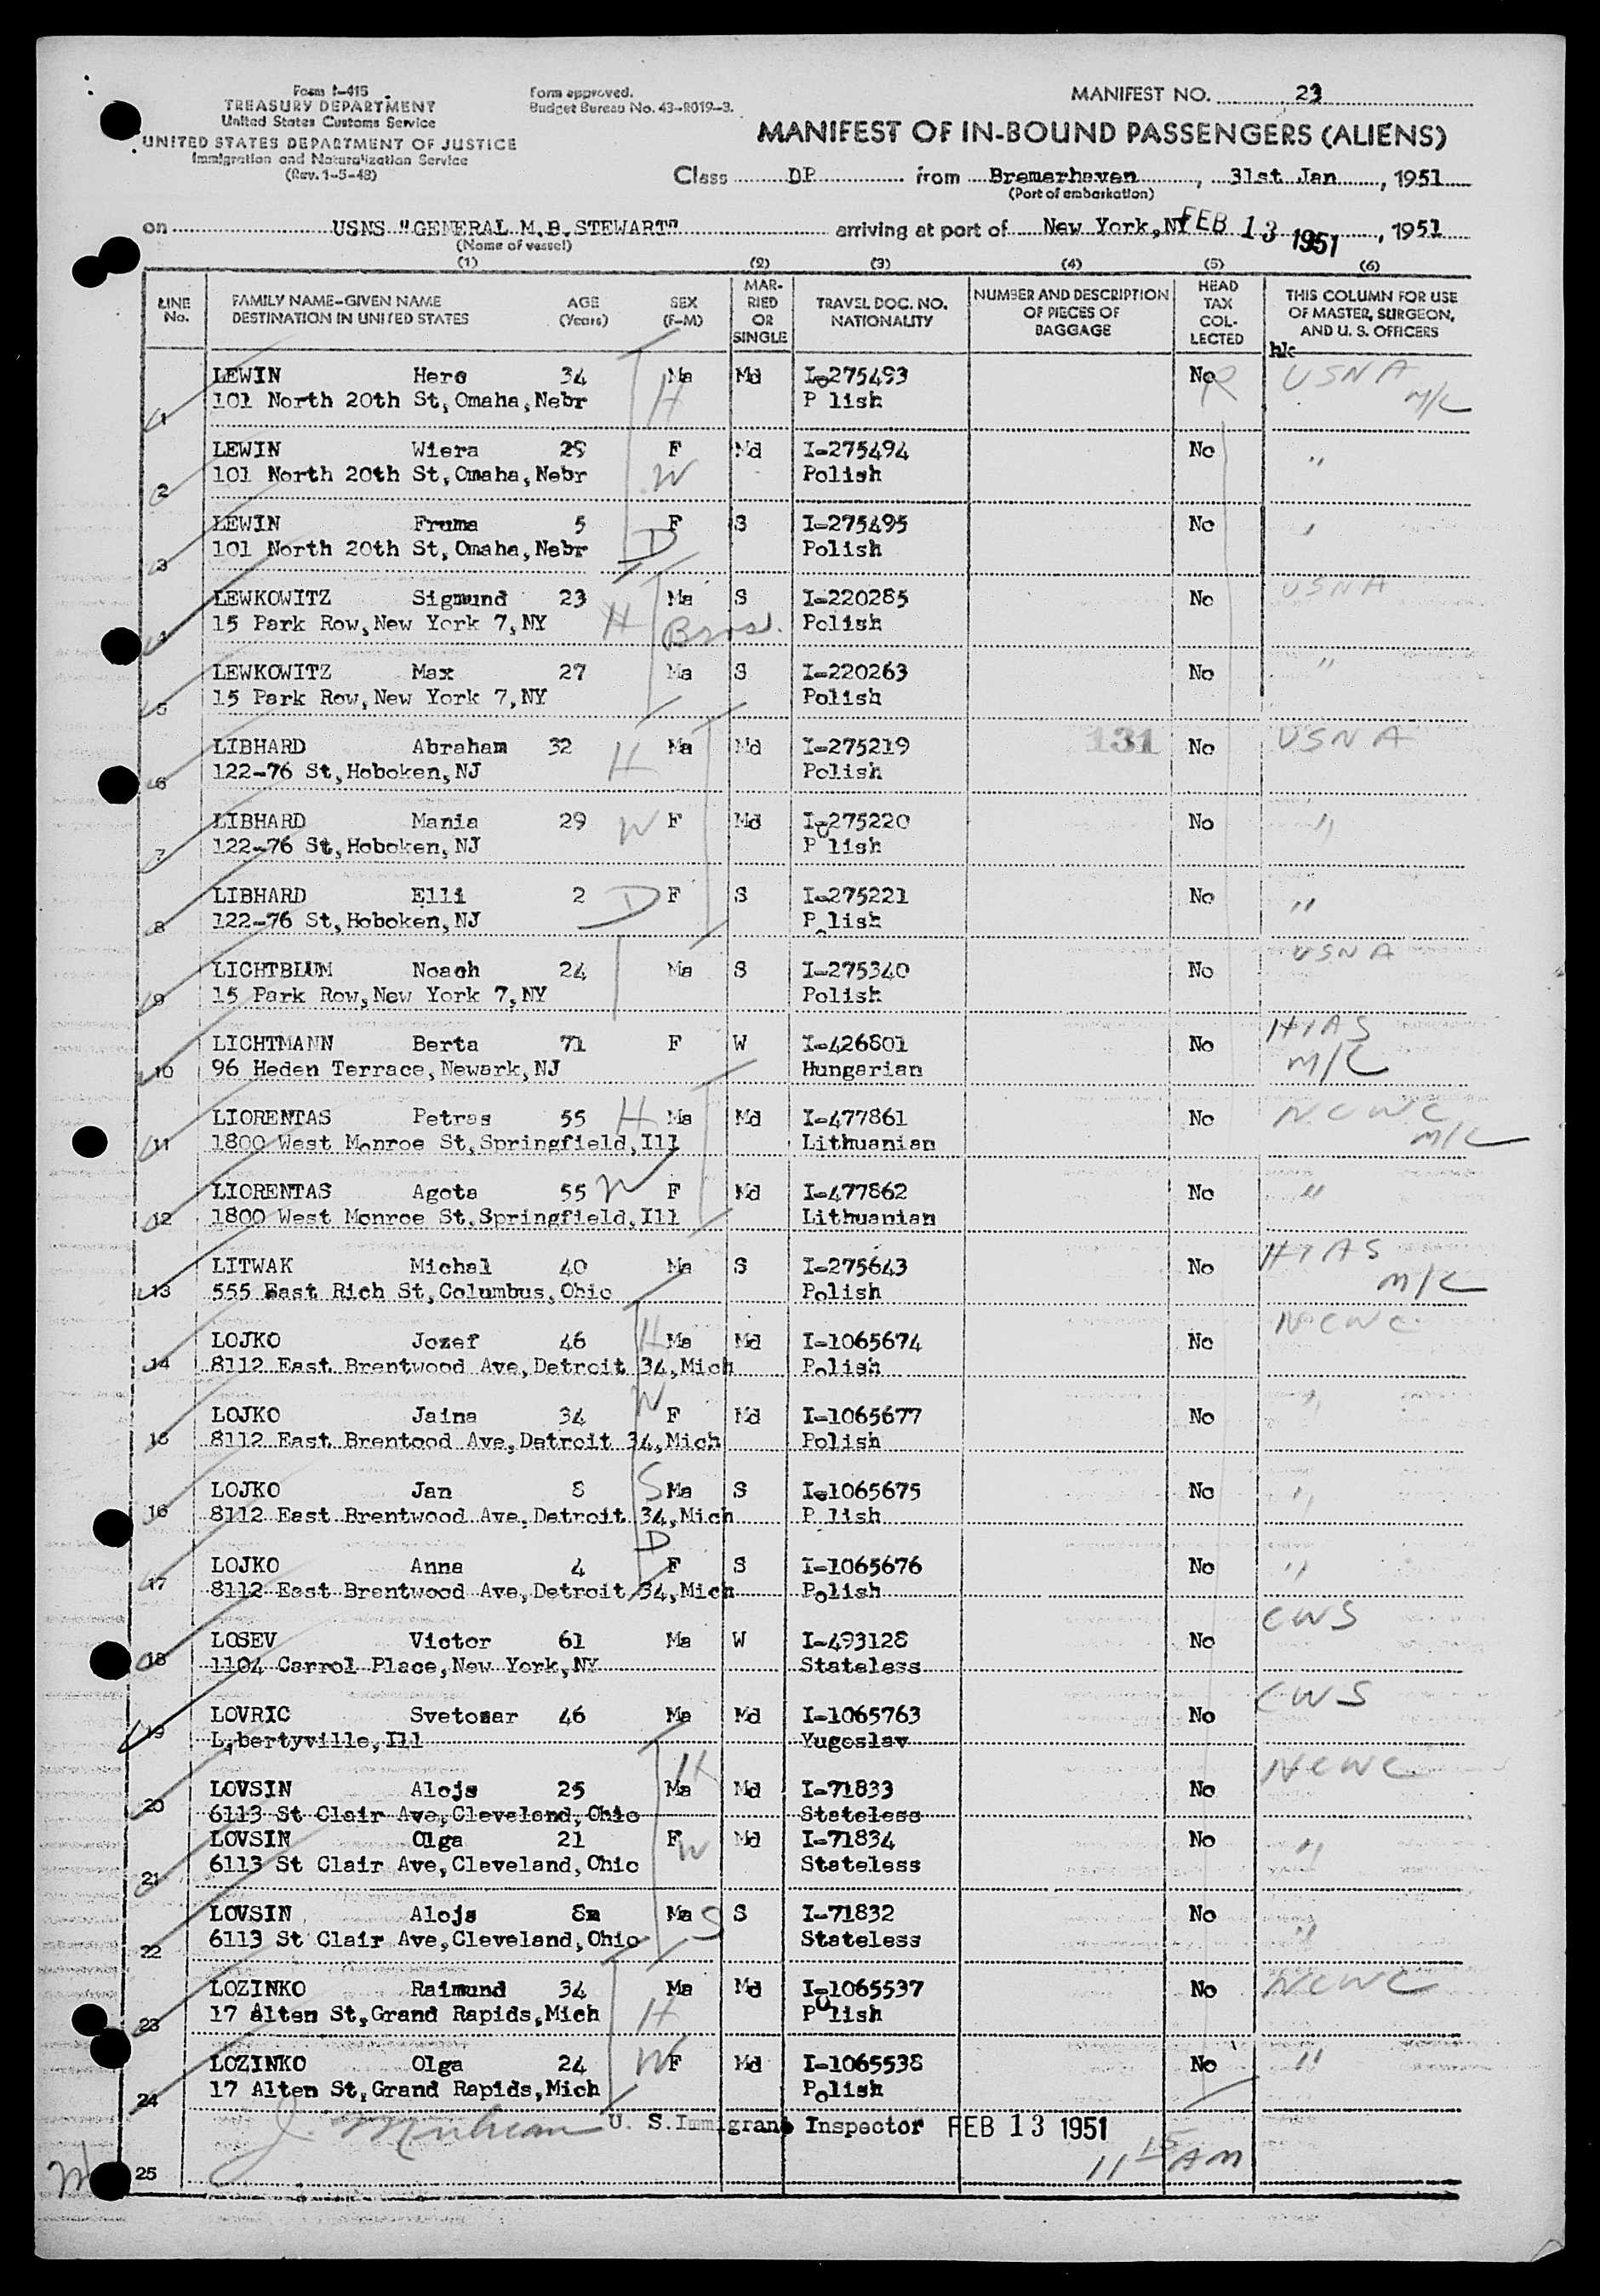 Form I-415
TREASURY DEPARTMENT
United States Customs Service
UNITED STATES DEPARTMENT OF JUSTICE
Immigration and Naturalization Service
(Rev. 1-5-48)
Form approved.
Budget Bureau No. 43-R019-3.
MANIFEST NO. 23
MANIFEST OF IN-BOUND PASSENGERS (ALIENS)
Class DP from Bremerhaven, 31st Jan, 1951
(Port of embarkation)
on USNS "GENERAL M.B.STEWART" arriving at port of New York, NY FEB 13 1951, 1951
(Name of vessel)
(1) (2) (3) (4) (5) (6)
LINE No. FAMILY NAME-GIVEN NAME DESTINATION IN UNITED STATES AGE (Years) SEX (F-M) MARRIED OR SINGLE TRAVEL DOC. NO. NATIONALITY NUMBER AND DESCRIPTION OF PIECES OF BAGGAGE HEAD TAX COLLECTED THIS COLUMN FOR USE OF MASTER, SURGEON, AND U. S. OFFICERS
hk
LEWIN Hers 34 Ma Md I-275493 No USNA
1 101 North 20th St, Omaha, Nebr H Polish R M/C
LEWIN Wiera 29 F Md I-275494 No "
2 101 North 20th St, Omaha, Nebr W Polish
LEWIN Fruma 5 F S I-275495 No "
3 101 North 20th St, Omaha, Nebr D Polish
LEWKOWITZ Sigmund 23 Ma S I-220285 No USNA
4 15 Park Row, New York 7, NY H Bros. Polish
LEWKOWITZ Max 27 Ma S I-220263 No "
5 15 Park Row, New York 7, NY Polish
LIBHARD Abraham 32 H Ma Md I-275219 131 No USNA
6 122-76 St, Hoboken, NJ Polish
LIBHARD Mania 29 W F Md I-275220 No "
7 122-76 St, Hoboken, NJ Polish
LIBHARD Elli 2 D F S I-275221 No "
8 122-76 St, Hoboken, NJ Polish
LICHTBLUM Noach 24 Ma S I-275340 No USNA
9 15 Park Row, New York 7, NY Polish
LICHTMANN Berta 71 F W I-426801 No HIAS
10 96 Heden Terrace, Newark, NJ Hungarian M/C
LIORENTAS Petras 55 H Ma Md I-477861 No NCWC
11 1800 West Monroe St, Springfield, Ill Lithuanian M/C
LIORENTAS Agota 55 W F Md I-477862 No "
12 1800 West Monroe St, Springfield, Ill Lithuanian
LITWAK Michal 40 Ma S I-275643 No HIAS
13 555 East Rich St, Columbus, Ohio Polish M/C
LOJKO Jozef 46 H Ma Md I-1065674 No NCWC
14 8112 East Brentwood Ave, Detroit 34, Mich Polish
LOJKO Jaina 34 W F Md I-1065677 No "
15 8112 East Brentood Ave, Detroit 34, Mich Polish
LOJKO Jan 8 S Ma S I-1065675 No "
16 8112 East Brentwood Ave, Detroit 34, Mich Polish
LOJKO Anna 4 D F S I-1065676 No "
17 8112 East Brentwood Ave, Detroit 34, Mich Polish
LOSEV Victor 61 Ma W I-493128 No CWS
18 1104 Carrol Place, New York, NY Stateless
LOVRIC Svetozar 46 Ma Md I-1065763 No CWS
19 Libertyville, Ill Yugoslav
LOVSIN Alojs 25 H Ma Md I-71833 No NCWC
20 6113 St Clair Ave, Cleveland, Ohio Stateless
LOVSIN Olga 21 F W Md I-71834 No "
21 6113 St Clair Ave, Cleveland, Ohio Stateless
LOVSIN Alojs 8m Ma S S I-71832 No "
22 6113 St Clair Ave, Cleveland, Ohio Stateless
LOZINKO Raimund 34 Ma Md I-1065537 No NCWC
23 17 Alten St, Grand Rapids, Mich H Polish
LOZINKO Olga 24 W F Md I-1065538 No "
24 17 Alten St, Grand Rapids, Mich Polish
U. S. Immigrant Inspector FEB 13 1951
25 11 15 AM